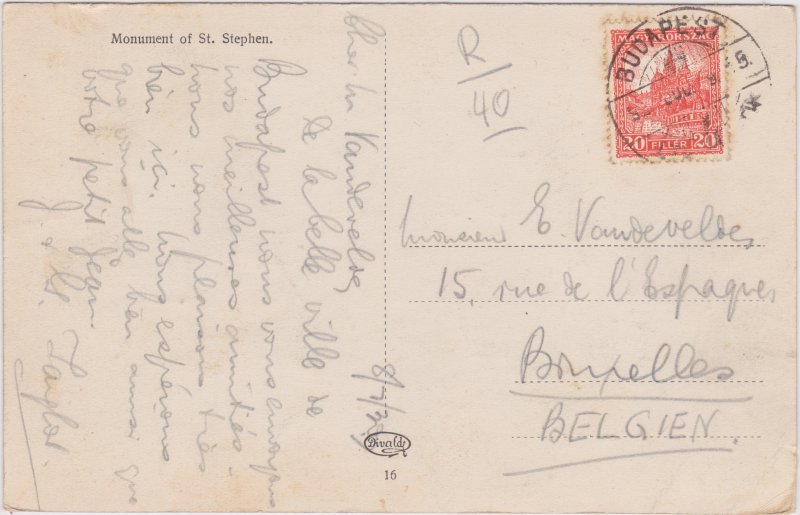 Monument of St. Stephen.
8/7/30
Cher Mr Vandevelde,
De la belle ville de
Budapest nous vous envoyons
nos meilleures amitiés.
nous nous plaisons très
bien ici. nous espérons
que vous allez bien ainsi que
votre petit Jean.
J & G. Langlot.
R/40
BUDAPEST
MAGYARORSZÁG
20 FILLÉR 20
Monsieur E. Vandevelde,
15, rue de l'Espagne,
Bruxelles
BELGIEN.
Divald
16